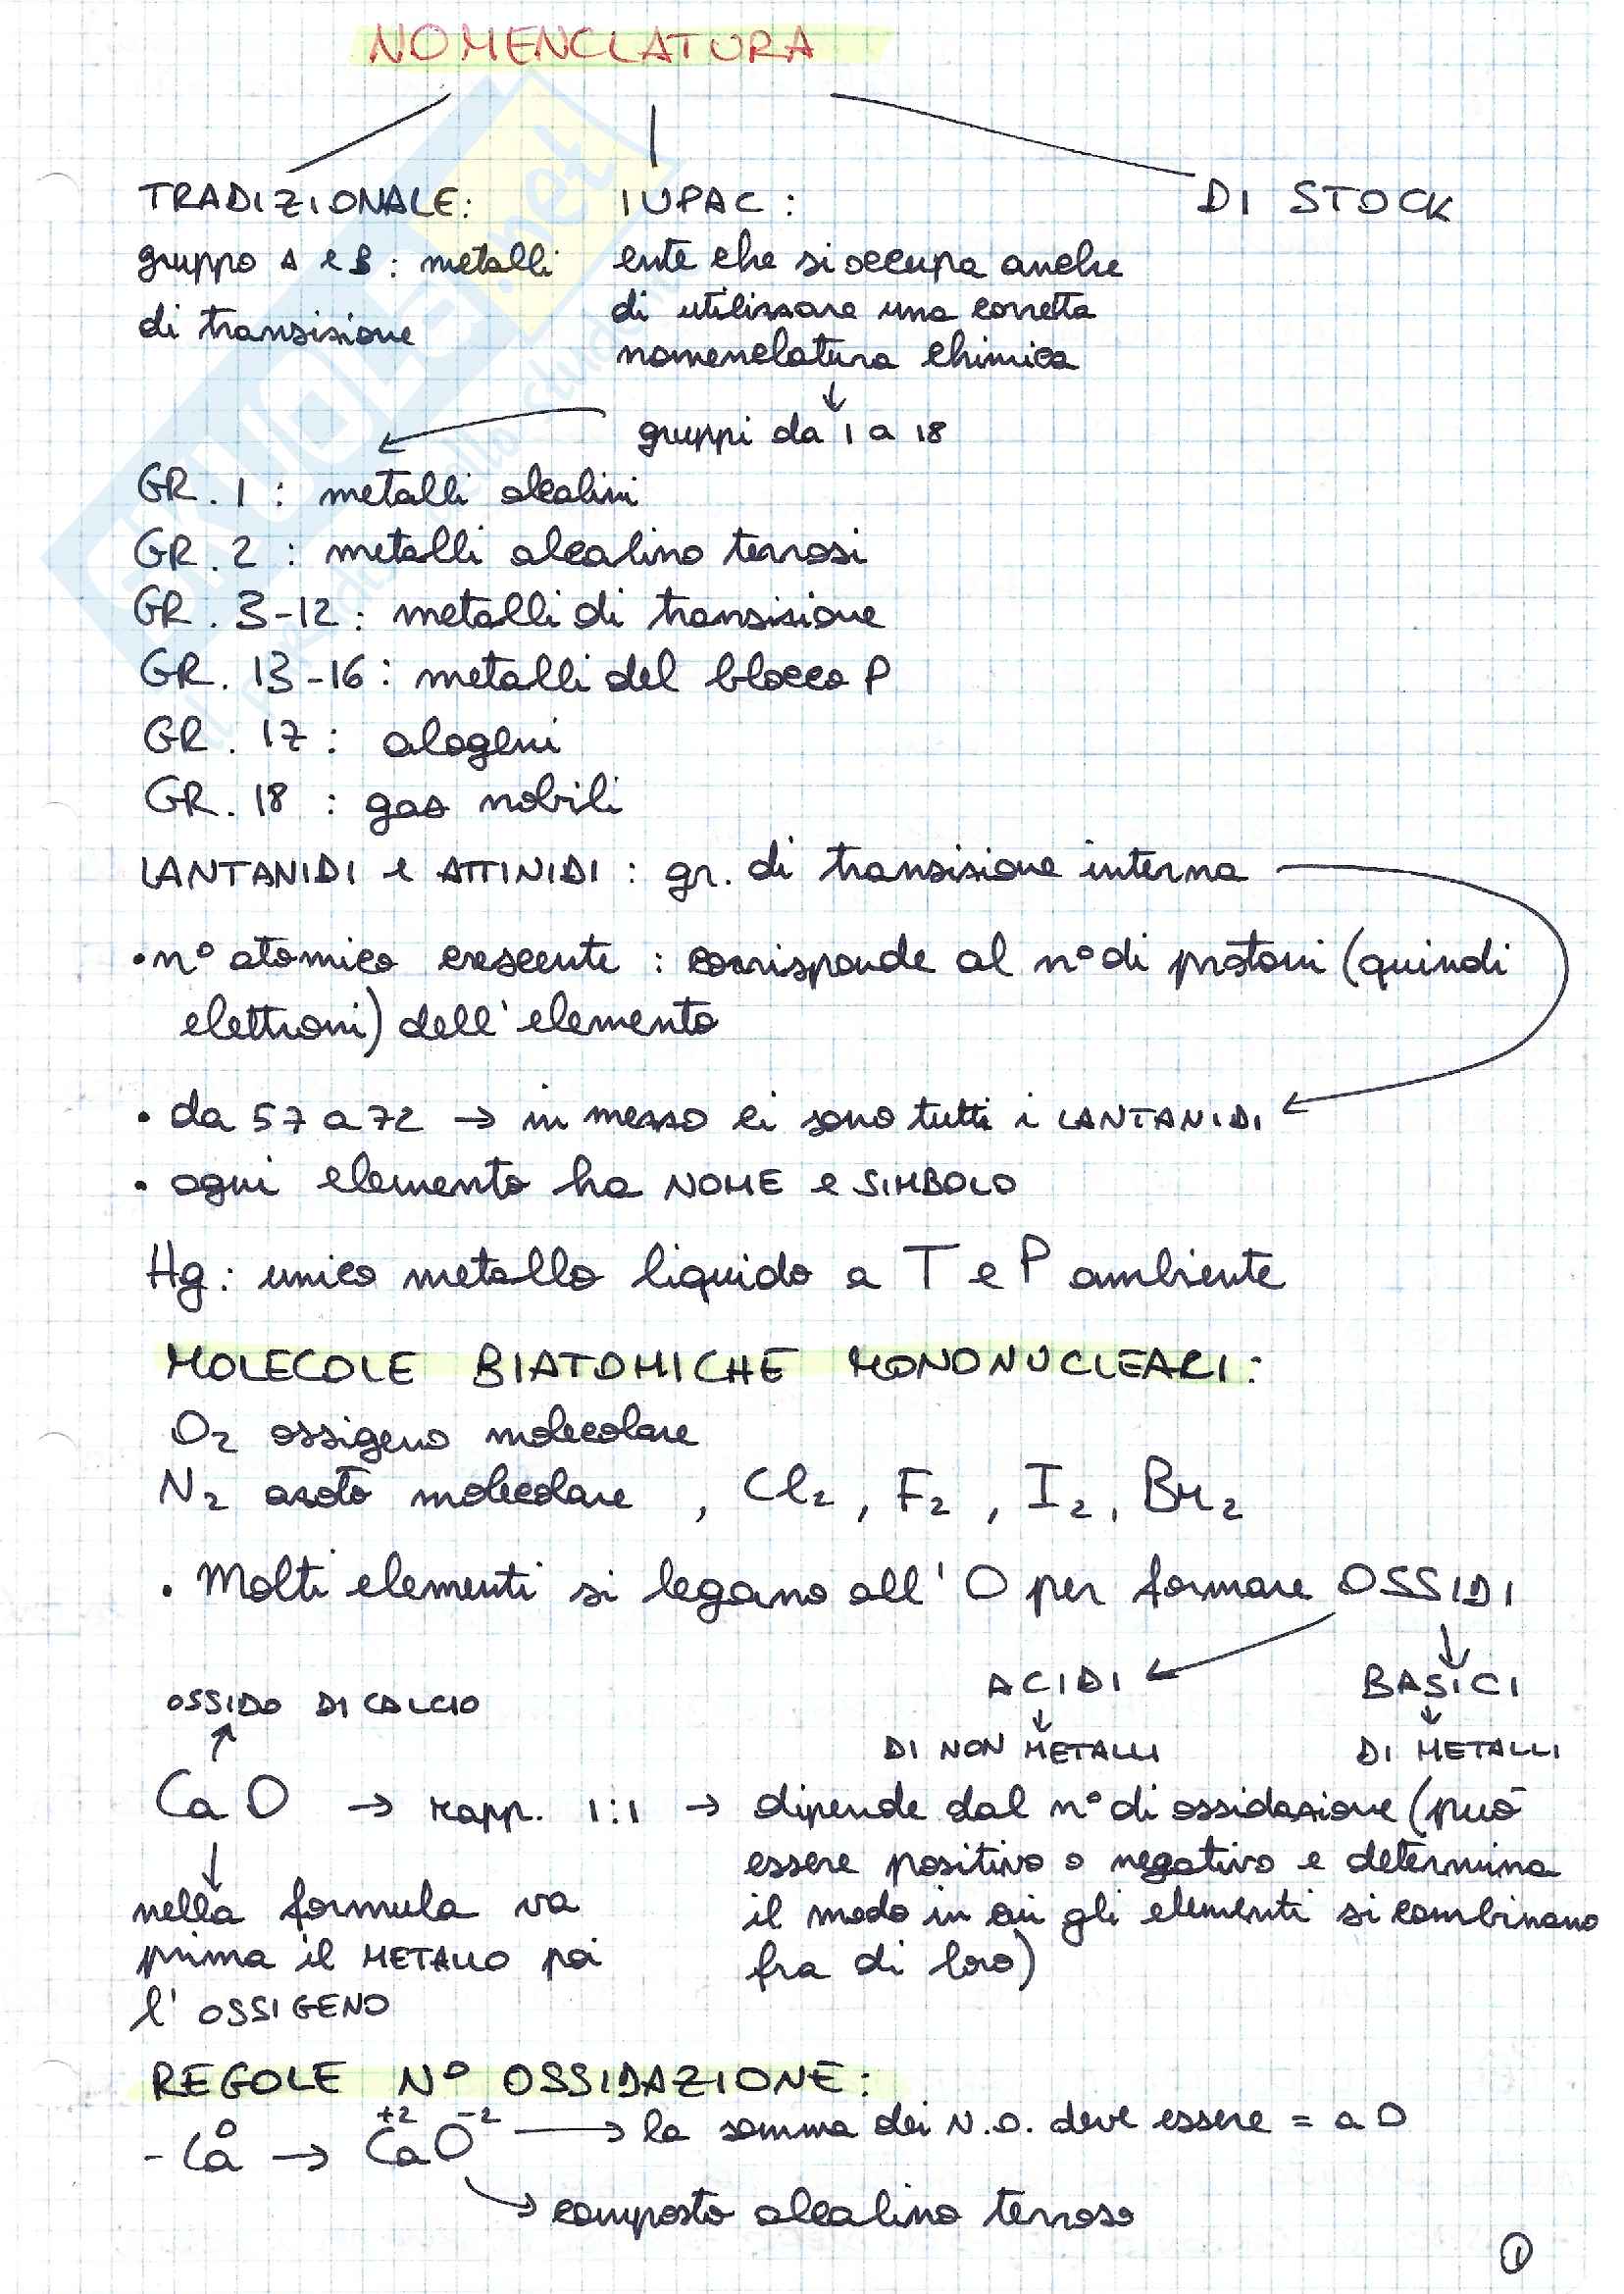 NOMENCLATURA
TRADIZIONALE:
gruppo A e B: metalli
di transizione
IUPAC:
ente che si occupa anche
di utilizzare una corretta
nomenclatura chimica
↓
gruppi da 1 a 18
DI STOCK
GR. 1 : metalli alcalini
GR. 2 : metalli alcalino terrosi
GR. 3-12: metalli di transizione
GR. 13-16: metalli del blocco P
GR. 17: alogeni
GR. 18 : gas nobili
LANTANIDI e ATTINIDI: gr. di transizione interna
• n° atomico crescente : corrisponde al n° di protoni (quindi
elettroni) dell'elemento
• da 57 a 72 → in mezzo ci sono tutti i LANTANIDI
• ogni elemento ha NOME e SIMBOLO
Hg: unico metallo liquido a T e P ambiente
MOLECOLE BIATOMICHE MONONUCLEARI:
O₂ ossigeno molecolare
N₂ azoto molecolare , Cl₂ , F₂ , I₂, Br₂
• Molti elementi si legano all'O per formare OSSIDI
ACIDI
↓
DI NON METALLI
BASICI
↓
DI METALLI
OSSIDO DI CALCIO
↑
CaO → rapp. 1:1 → dipende dal n° di ossidazione (può
essere positivo o negativo e determina
il modo in cui gli elementi si combinano
fra di loro)
↓
nella formula va
prima il METALLO poi
l'OSSIGENO
REGOLE N° OSSIDAZIONE:
0 +2 -2
- Ca → CaO → la somma dei N.O. deve essere = a 0
→ composto alcalino terroso
1